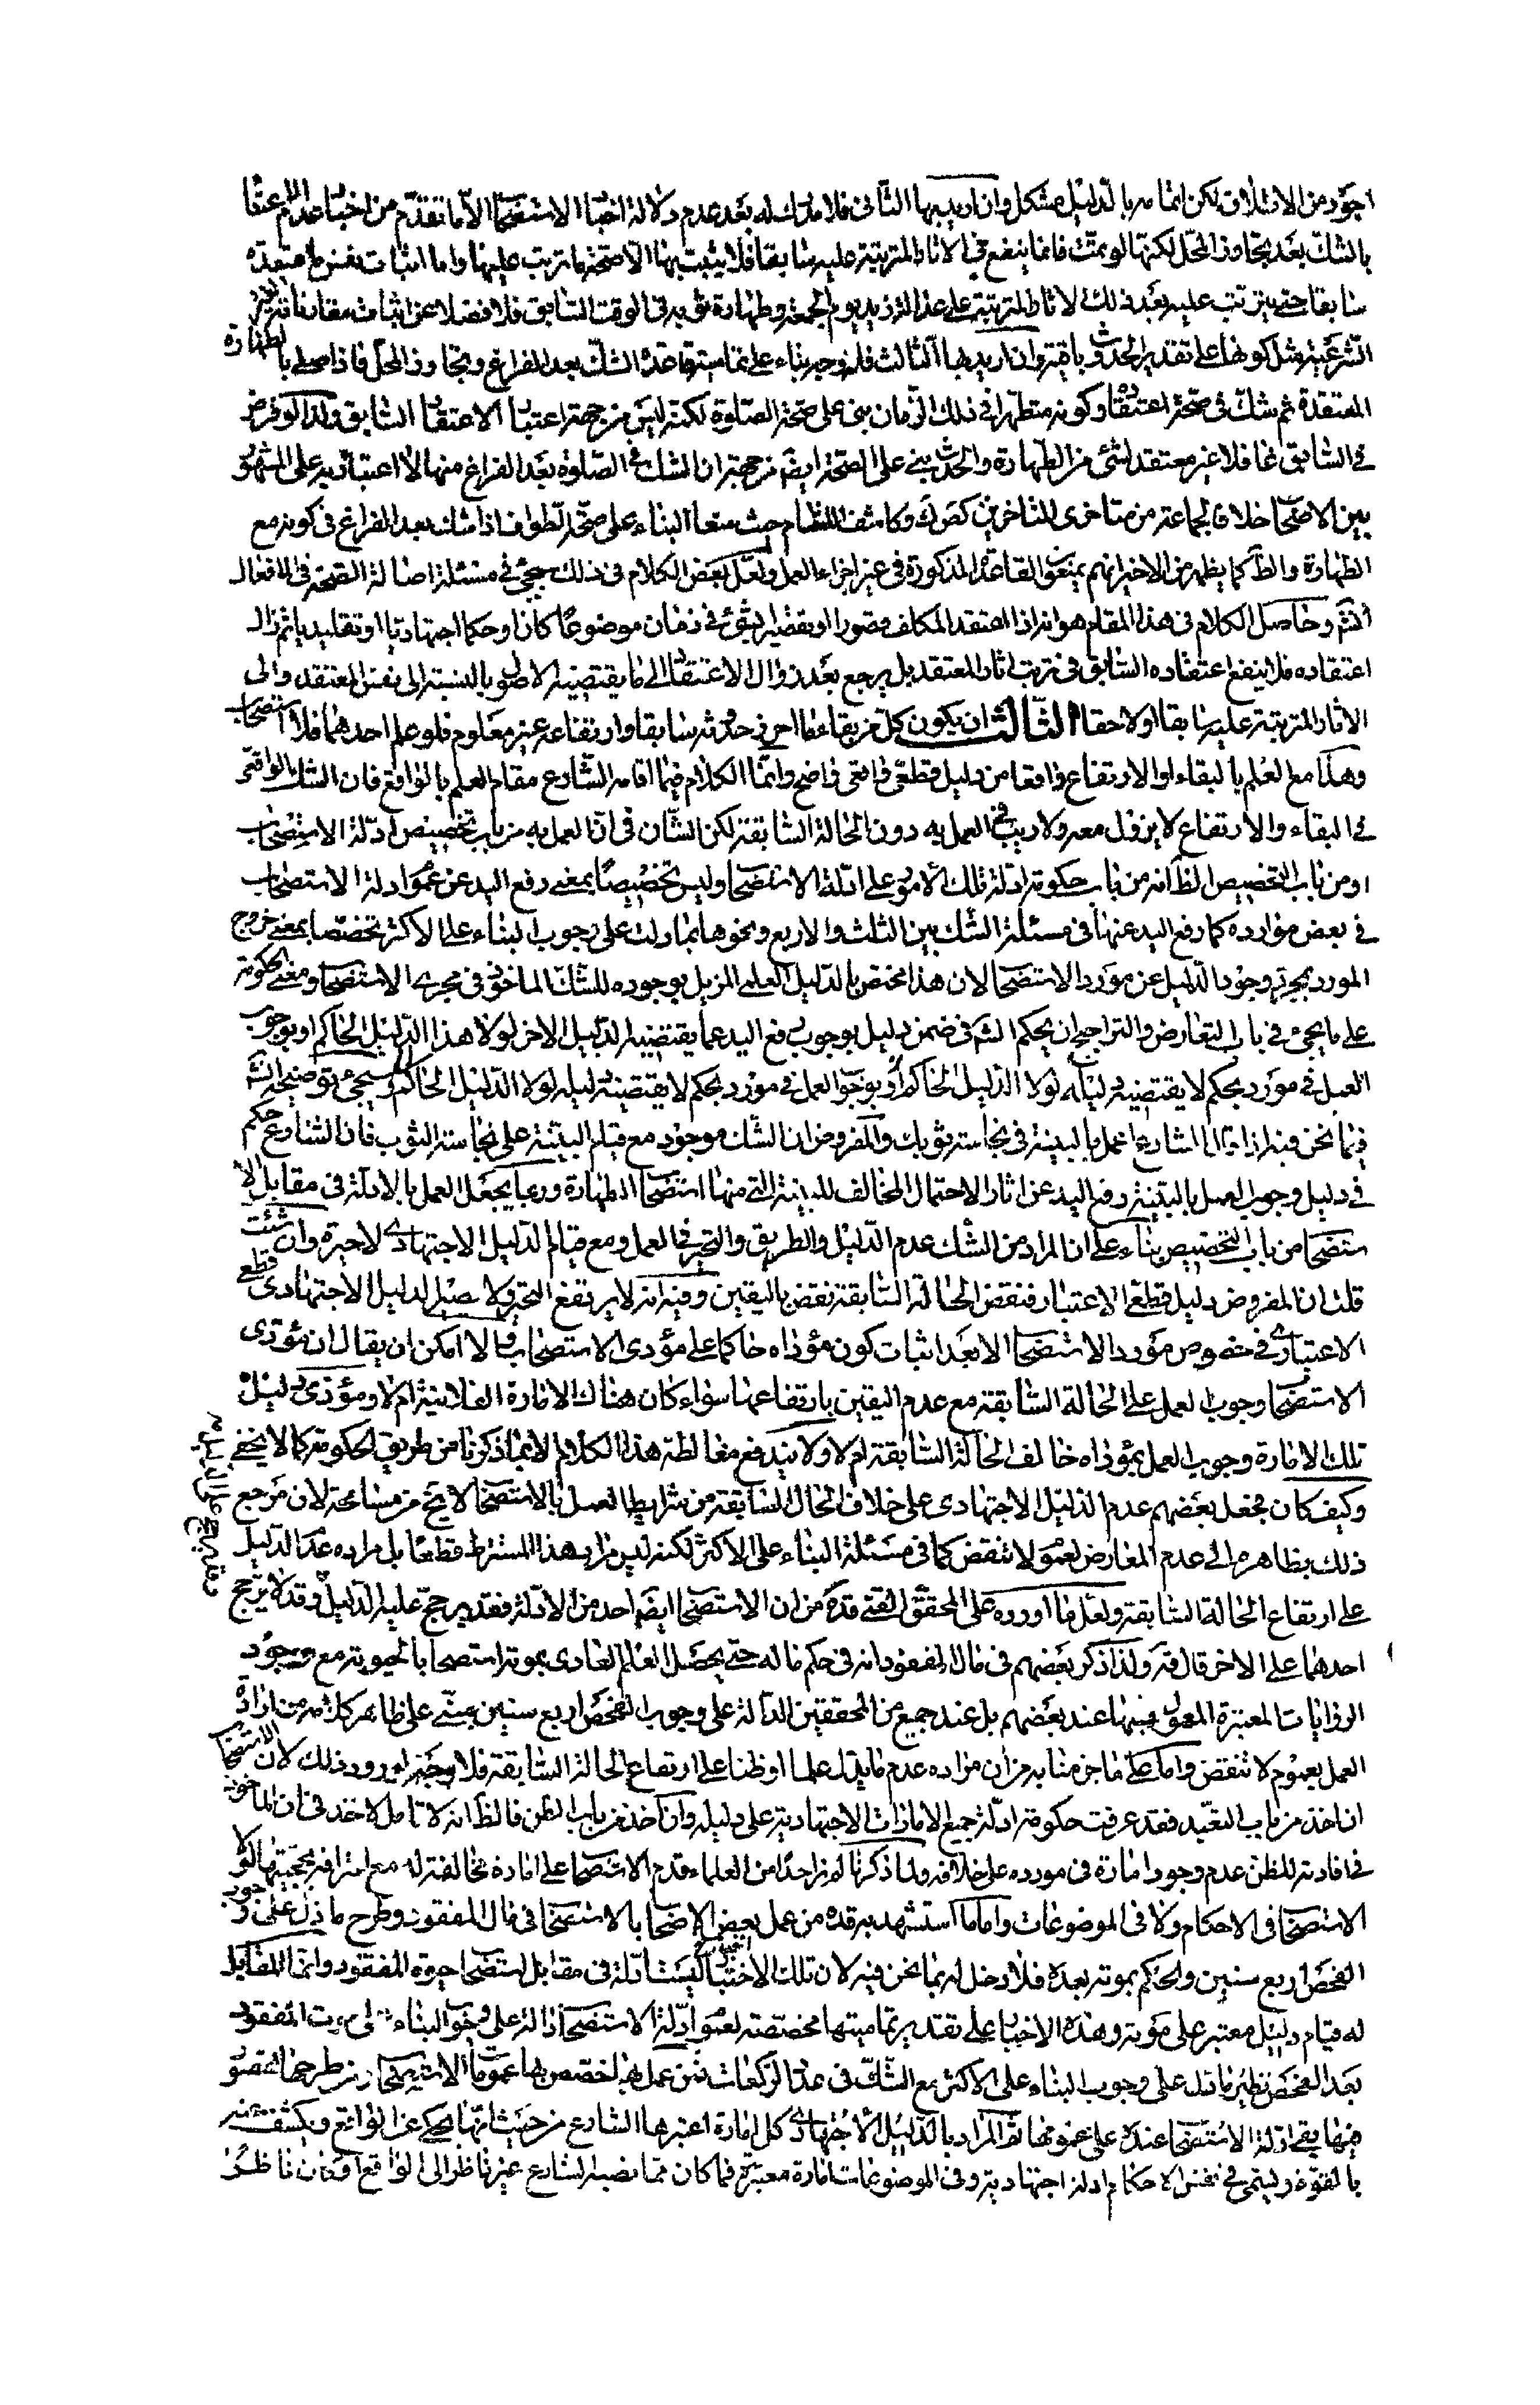 اجود من الاختلاق لكن اتمامه بالدليل مشكل وان اريد بها الثانى فلا مدرك له بعد عدم دلالة اخبا الاستصحا الا ما تقدم من اخبا عدم الاعتنا
بالشك بعد تجاوز المحل لكنها لو تمت فانما ينفع فى الاثار المترتبة عليه سابقا فلا يثبت بها الا صحة ما ترتب عليها واما اثبات نفس ما اعتقده
سابقا حتى يترتب عليه بعد ذلك الاثار المترتبة على عدالة زيد يوم الجمعة وطهارة ثوبه فى الوقت السابق فلا فضلا عن اثبات مقارناته الغير
الشرعية مثل كونها على تقدير الحدوث باقية وان اريد بها الثالث فله وجه بناء على تمامية قاعدة الشك بعد الفراغ وتجاوز المحل فاذا صلى بالطهارة
المعتقدة ثم شك فى صحة اعتقاده وكونه متطهرا فى ذلك الزمان بنى على صحة الصلوة لكنه ليس من جهة اعتبا الاعتقا السابق ولذا لو فرض
فى السابق غافلا غير معتقد لشئ من الطهارة والحدث بنى على الصحة ايضا من جهة ان الشك فى الصلوة بعد الفراغ منها لا اعتبار به على المشهو
بين الاصحا خلافا لجماعة من متاخرى المتاخرين كصرك وكاشف اللثام حيث منعا البناء على صحة الطواف اذا شك بعد الفراغ فى كونه مع
الطهارة والظ كما يظهر من الاخير انهم يمنعون القاعدة المذكورة فى غير اجزاء العمل ولعل بعض الكلام فى ذلك سيجئ فى مسئلة اصالة الصحة فى الافعال
انش وحاصل الكلام فى هذا المقام هو انه اذا اعتقد المكلف قصورا او تقصيرا بشئ فى زمان موضوعا كان او حكما اجتهاديا او تقليديا ثم زال
اعتقاده فلا ينفع اعتقاده السابق فى ترتب اثار المعتقد بل يرجع بعد زوال الاعتقا الى ما يقتضيه الاصول بالنسبة الى نفس المعتقد والى
الاثار المترتبة عليه سابقا او لاحقا الثالث ان يكون كل من بقاء ما احرز حدوثه سابقا وارتفاعه غير معلوم فلو علم احدهما فلا استصحاب
وهذا مع العلم بالبقاء او الارتفاع واقعا من دليل قطعى واقعى واضح وانما الكلام فيما اقامه الشارع مقام العلم بالواقع فان الشك الواقعى
فى البقاء والارتفاع لا يزول معه ولا ريب فى العمل به دون الحالة السابقة لكن الشان فى ان العمل به من باب تخصيص ادلة الاستصحاب
او من باب التخصص الظ انه من باب حكومة ادلة تلك الامور على ادلة الاستصحا وليس تخصيصا بمعنى رفع اليد عن عمو ادلة الاستصحاب
فى بعض موارده كما رفع اليد عنها فى مسئلة الشك بين الثلث والاربع ونحوها بما دلت على وجوب البناء على الاكثر ولا تخصصا بمعنى خروج
المورد بمجرد وجود الدليل عن مورد الاستصحا لان هذا مختص بالدليل العلمى المزيل بوجوده للشك الماخوذ فى مجرى الاستصحا ومعنى الحكومة
على ما يجئ فى باب التعارض والتراجيح ان يحكم الش فى ضمن دليل بوجوب رفع اليد عما يقتضيه الدليل الاخر لولا هذا الدليل الحاكم او بوجوب
العمل فى مورد بحكم لا يقتضيه دليله لولا الدليل الحاكم وسيجئ توضيحه انش
فيما نحن فيه اذا قال الشارع اعمل بالبينة فى نجاسة ثوبك والمفروض ان الشك موجود مع قيام البينة على نجاسة الثوب فان الشارع حكم
فى دليل وجوب العمل بالبينة برفع اليد عن اثار الاحتمال المخالف للبينة التى منها استصحا الطهارة وربما يجعل العمل بالادلة فى مقابل الا
ستصحا من باب التخصص بناء على ان المراد من الشك عدم الدليل والطريق والتحير فى العمل ومع قيام الدليل الاجتهادى لا حيرة وان شئت
قلت ان المفروض دليل قطعى الاعتبار فنقض الحالة السابقة نقض باليقين وفيه انه لا يرتفع التحير ولا يصير الدليل الاجتهادى قطعى
الاعتبار فى خصوص مورد الاستصحا الا بعد اثبات كون مؤداه حاكما على مؤدى الاستصحاب والا امكن ان يقال ان مؤدى
الاستصحا وجوب العمل على الحالة السابقة مع عدم اليقين بارتفاعها سواء كان هناك الامارة الفلانية ام لا ومؤدى دليل
تلك الامارة وجوب العمل بمؤداه خالف الحالة السابقة ام لا ولا يندفع مغالطة هذا الكلام الا بما ذكرنا من طريق الحكومة كما لا يخفى
وكيف كان فجعل بعضهم عدم الدليل الاجتهادى على خلاف الحالة السابقة من شرايط العمل بالاستصحا لا يخ من مسامحة لان مرجع
ذلك بظاهره الى عدم المعارض لعمو لا تنقض كما فى مسئلة البناء على الاكثر لكنه ليس مراد هذا المشترط قطعا بل مراده عدم الدليل
على ارتفاع الحالة السابقة ولعل ما اورده على المحقق القمى قده من ان الاستصحا ايضا احد من الادلة فقد يرجح عليه الدليل وقد لا يرجح
احدهما على الاخر قال قده ولذا ذكر بعضهم فى مال المفقود انه فى حكم ماله حتى يحصل العلم العادى بموته استصحابا لحيوته مع وجود
الروايات المعتبرة المعمول بها عند بعضهم بل عند جميع من المحققين الدالة على وجوب الفحص اربع سنين مبنى على ظاهر كلامه من ارادة
العمل بعموم لا تنقض واما على ما جزمنا به من ان مراده عدم ما يدل علما او ظنا على ارتفاع الحالة السابقة فلا وجه لورود ذلك لان الاستصحاب
ان اخذ من باب التعبد فقد عرفت حكومة ادلة جميع الامارات الاجتهادية على دليله وان اخذ من باب الظن فالظ انه لا تامل لاحد فى ان الماخوذ
فى افادته للظن عدم وجود امارة فى مورده على خلافه ولذا ذكرنا لم نر احدا من العلماء قدم الاستصحا على امارة مخالفة له مع اعترافه بحجيتها لولا
الاستصحا فى الاحكام ولا فى الموضوعات واما ما استشهد به قده من عمل بعض الاصحا بالاستصحا فى مال المفقود وطرح ما دل على وجوب
الفحص اربع سنين والحكم بموته بعده فلا دخل له بما نحن فيه لان تلك الاخبا ليست ادلة فى مقابل استصحا حيوة المفقود وانما المقابل
له قيام دليل معتبر على موته وهذه الاخبار على تقدير تماميتها مخصصة لعمو ادلة الاستصحا دالة على وجو البناء على موت المفقود
بعد الفحص نظير ما دل على وجوب البناء على الاكثر مع الشك فى عدد الركعات فمن عمل بها خصص بها عمومات الاستصحا ومن طرحها لقصو
فيها بقى ادلة الاستصحا عنده على عمومها ثم المراد بالدليل الاجتهادى كل امارة اعتبرها الشارع من حيث انها تحكى عن الواقع ويكشف عنه
بالقوة ويسمى فى نفس الاحكام ادلة اجتهادية وفى الموضوعات امارة معتبرة فما كان مما نصبه الشارع غير ناظر الى الواقع او كان ناظرا